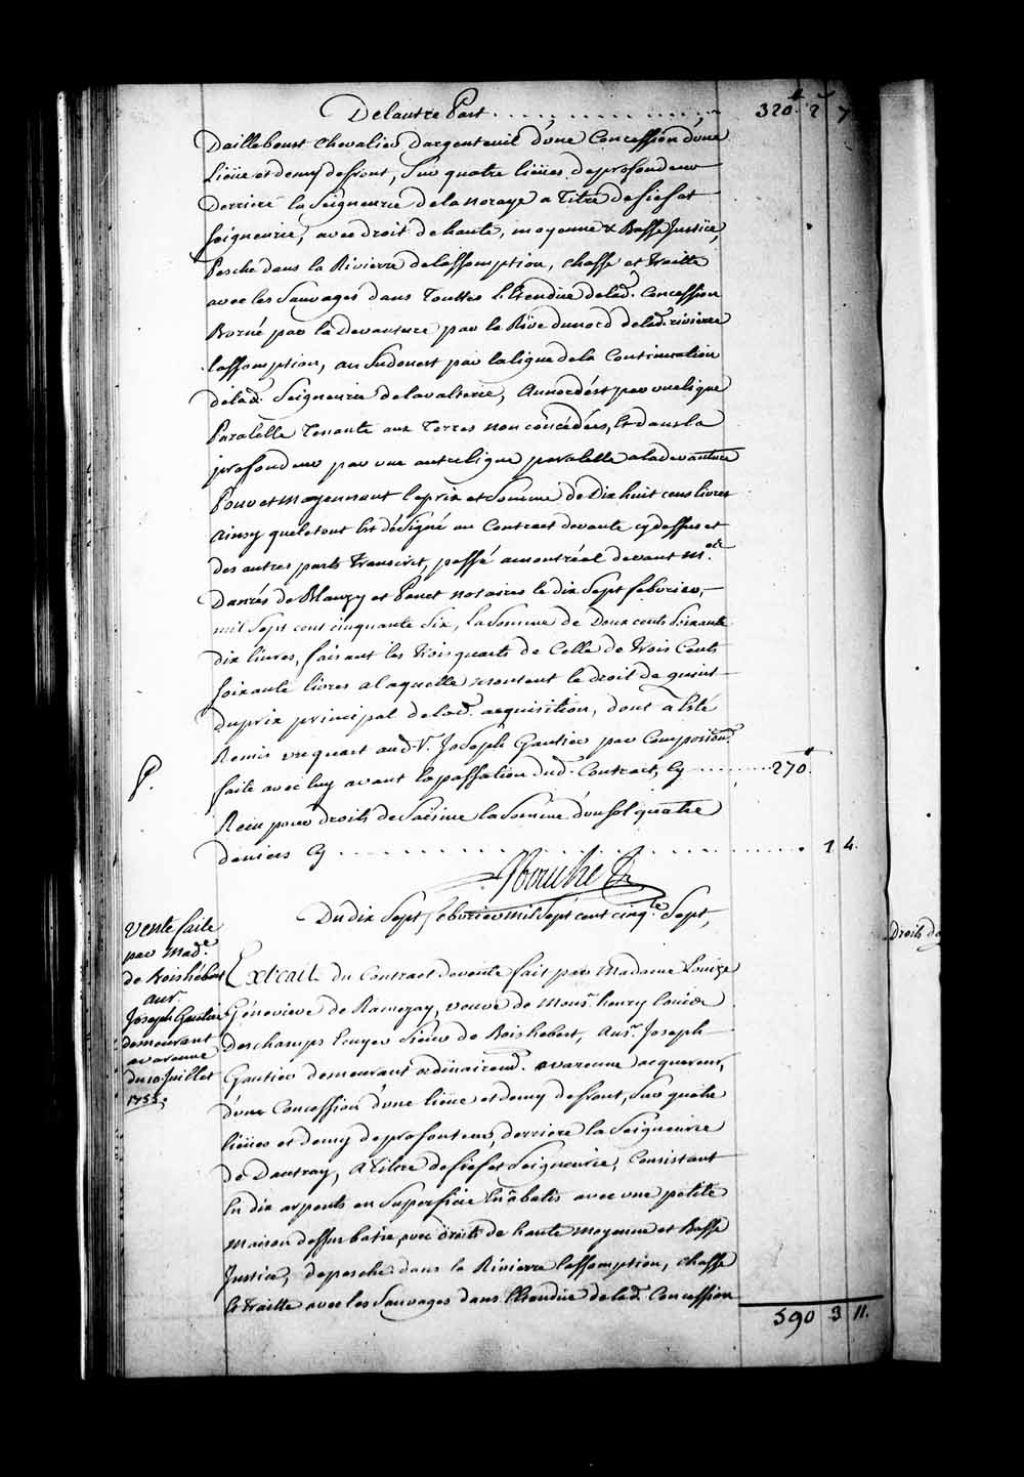 Delautre Part . . . . . . . . . . . . 320.₶ 2 7
Daillebout chevalier Dargenteuil d'une Concession d'une
Lieüe et demy de front, Sur quatre lieües de profondeur
Derriere la Seigneurie de la noraye a Titre de fief et
Seigneurie, avec droit de haute, moyenne & Basse Justice,
Pesche dans la Riviere de lassomption, chasse et traitte
avec les Sauvages dans Touttes L'Etendüe de lad. Concession
Borné par la devanture par la Rive du nord de lad. riviere
lassomption, au Sudouest par la ligne de la Continuation
de lad. Seigneurie de lavalterie, Au nordest par une ligne
Paralelle Tenante aux Terres non concédées, Et dans la
profondeur par une autre ligne paralelle a la devanture
Pour et moyennant le prix et Somme de Dix huit cens livres
Ainsy que le tout Est désigné au Contract de vente cy dessus et
des autres parts transcrit, passé a montréal devant M.es
Danrés de Blanzy et Penet notaires le dix Sept febvrier,
mil Sept cent cinquante Six, La Somme de Deux cents Soixante
dix livres, faisant les trois quarts de Celle de trois Cents
Soixante livres a laquelle montent le droit de quint
du prix principal de lad. acquisition, dont a Esté
Remis un quart aud. S.r Joseph Gautier par Composition
faite avec luy avant la passation dud. Contract, Cy . . . . . . 270.₶
P.
Reçu pour droits de Saisine la Somme d'un Sol quatre
deniers Cy . . . . . . . . . . . . . . . . . . 1 4.
Du dix Sept febvrier mil Sept cent cinq.te Sept,
Vente faite
par Mad.e
de Boishébert
au S.r
Joseph Gautier
demeurant
a varenne
du 10 Juillet
1755;
Extrait du Contract de vente fait par Madame Louise
Génevieve de Ramezay, veuve de Mons.r henry louis
deschamps Ecuyer Sieur de Boishebert, au S.r Joseph
Gautier demeurant ordinairem.t a varenne acquereur,
d'une Concession d'une lieüe et demy de front, Sur quatre
lieües et demy de profondeur, derriere la Seigneurie
de Dautray, a Titre de fief et Seigneurie, Consistant
En dix arpents en Superficie En abatis avec une petite
maison dessus batie, avec droits de haute moyenne et Basse
Justice, de pesche dans la Riviere lassomption, chasse
Et traitte avec les Sauvages dans L'Etendüe de lad. Concession
590 3 11.
Droits de